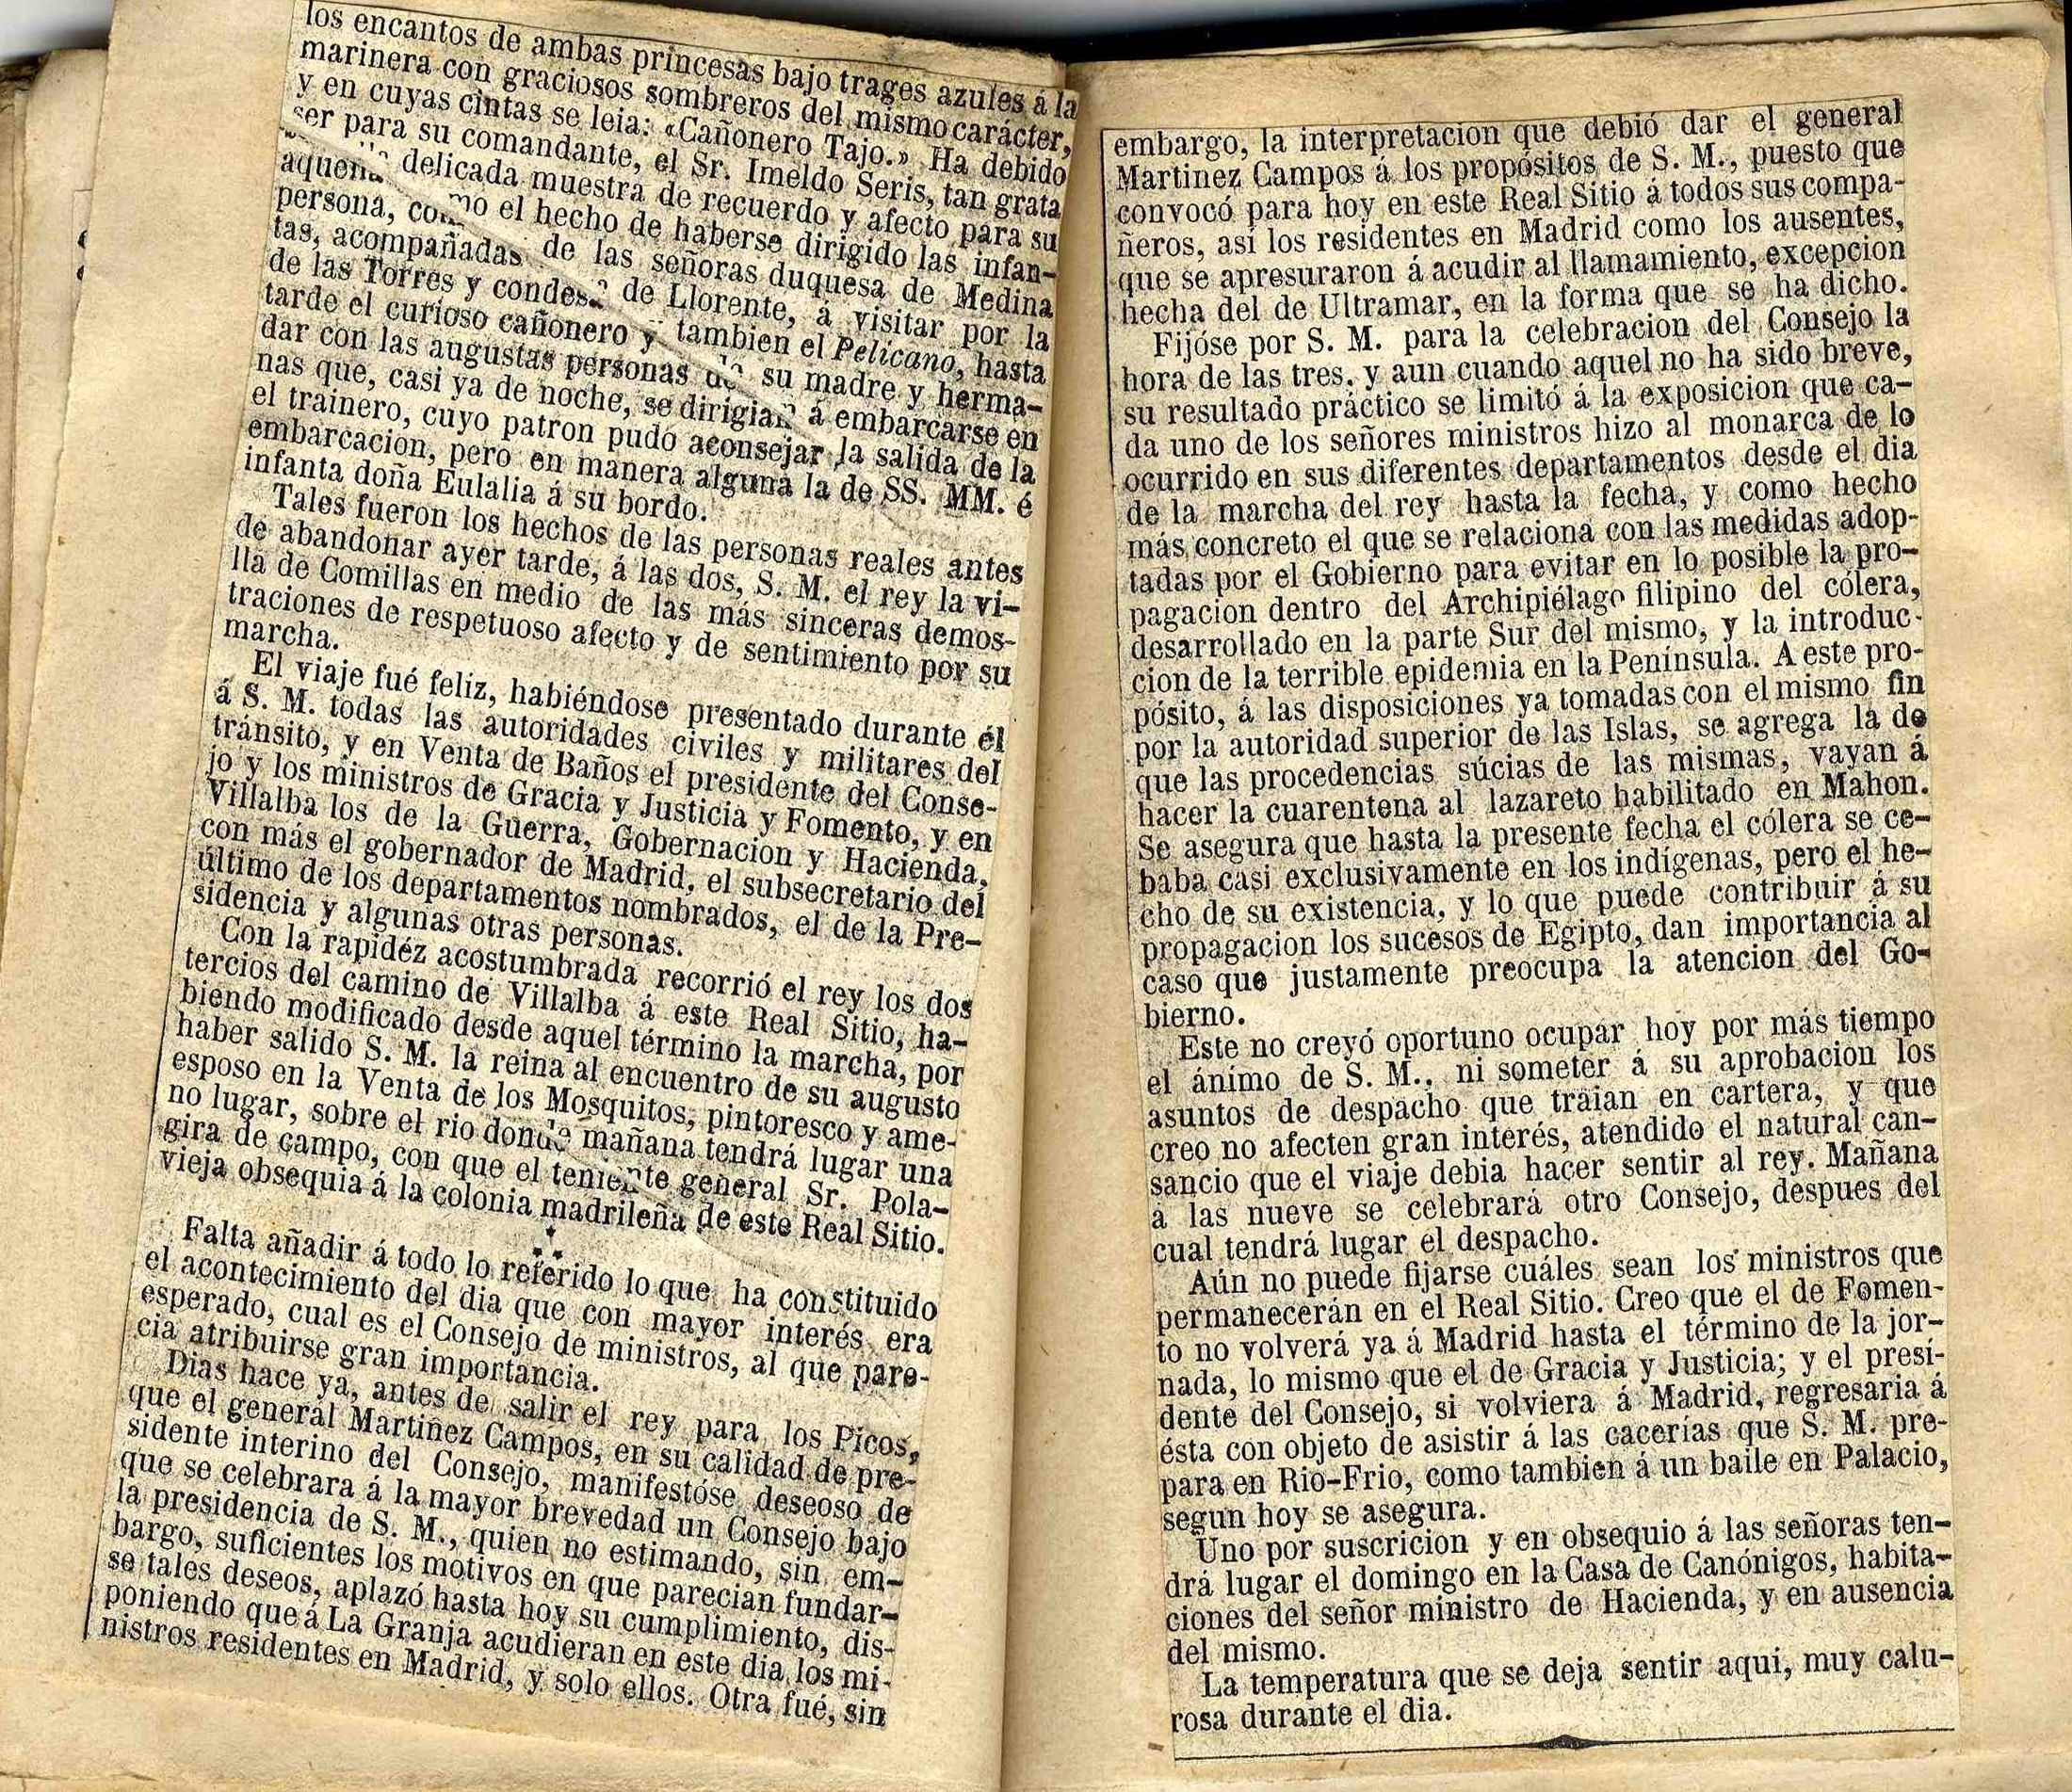 los encantos de ambas princesas bajo trages azules á la
marinera con graciosos sombreros del mismo carácter,
y en cuyas cintas se leia: «Cañonero Tajo.» Ha debido
ser para su comandante, el Sr. Imeldo Seris, tan grata
aquella delicada muestra de recuerdo y afecto para su
persona, como el hecho de haberse dirigido las infan-
tas, acompañadas de las señoras duquesa de Medina
de las Torres y condesa de Llorente, á visitar por la
tarde el curioso cañonero y tambien el Pelicano, hasta
dar con las augustas personas de su madre y herma-
nas que, casi ya de noche, se dirigian á embarcarse en
el trainero, cuyo patron pudo aconsejar la salida de la
embarcacion, pero en manera alguna la de SS. MM. é
infanta doña Eulalia á su bordo.
Tales fueron los hechos de las personas reales antes
de abandonar ayer tarde, á las dos, S. M. el rey la vi-
lla de Comillas en medio de las más sinceras demos-
traciones de respetuoso afecto y de sentimiento por su
marcha.
El viaje fué feliz, habiéndose presentado durante él
á S. M. todas las autoridades civiles y militares del
tránsito, y en Venta de Baños el presidente del Conse-
jo y los ministros de Gracia y Justicia y Fomento, y en
Villalba los de la Guerra, Gobernacion y Hacienda,
con más el gobernador de Madrid, el subsecretario del
último de los departamentos nombrados, el de la Pre-
sidencia y algunas otras personas.
Con la rapidéz acostumbrada recorrió el rey los dos
tercios del camino de Villalba á este Real Sitio, ha-
biendo modificado desde aquel término la marcha, por
haber salido S. M. la reina al encuentro de su augusto
esposo en la Venta de los Mosquitos, pintoresco y ame-
no lugar, sobre el rio donde mañana tendrá lugar una
gira de campo, con que el teniente general Sr. Pola-
vieja obsequia á la colonia madrileña de este Real Sitio.
Falta añadir á todo lo referido lo que ha constituido
el acontecimiento del dia que con mayor interés era
esperado, cual es el Consejo de ministros, al que pare-
cia atribuirse gran importancia.
Dias hace ya, antes de salir el rey para los Picos,
que el general Martinez Campos, en su calidad de pre-
sidente interino del Consejo, manifestóse deseoso de
que se celebrara á la mayor brevedad un Consejo bajo
la presidencia de S. M., quien no estimando, sin em-
bargo, suficientes los motivos en que parecian fundar-
se tales deseos, aplazó hasta hoy su cumplimiento, dis-
poniendo que á La Granja acudieran en este dia los mi-
nistros residentes en Madrid, y solo ellos. Otra fué, sin
embargo, la interpretacion que debió dar el general
Martinez Campos á los propósitos de S. M., puesto que
convocó para hoy en este Real Sitio á todos sus compa-
ñeros, así los residentes en Madrid como los ausentes,
que se apresuraron á acudir al llamamiento, excepcion
hecha del de Ultramar, en la forma que se ha dicho.
Fijóse por S. M. para la celebracion del Consejo la
hora de las tres, y aun cuando aquel no ha sido breve,
su resultado práctico se limitó á la exposicion que ca-
da uno de los señores ministros hizo al monarca de lo
ocurrido en sus diferentes departamentos desde el dia
de la marcha del rey hasta la fecha, y como hecho
más concreto el que se relaciona con las medidas adop-
tadas por el Gobierno para evitar en lo posible la pro-
pagacion dentro del Archipiélago filipino del cólera,
desarrollado en la parte Sur del mismo, y la introduc-
cion de la terrible epidemia en la Península. A este pro-
pósito, á las disposiciones ya tomadas con el mismo fin
por la autoridad superior de las Islas, se agrega la de
que las procedencias súcias de las mismas, vayan á
hacer la cuarentena al lazareto habilitado en Mahon.
Se asegura que hasta la presente fecha el cólera se ce-
baba casi exclusivamente en los indígenas, pero el he-
cho de su existencia, y lo que puede contribuir á su
propagacion los sucesos de Egipto, dan importancia al
caso que justamente preocupa la atencion del Go-
bierno.
Este no creyó oportuno ocupar hoy por más tiempo
el ánimo de S. M., ni someter á su aprobacion los
asuntos de despacho que traian en cartera, y que
creo no afecten gran interés, atendido el natural can-
sancio que el viaje debia hacer sentir al rey. Mañana
á las nueve se celebrará otro Consejo, despues del
cual tendrá lugar el despacho.
Aún no puede fijarse cuáles sean los ministros que
permanecerán en el Real Sitio. Creo que el de Fomen-
to no volverá ya á Madrid hasta el término de la jor-
nada, lo mismo que el de Gracia y Justicia; y el presi-
dente del Consejo, si volviera á Madrid, regresaria á
ésta con objeto de asistir á las cacerías que S. M. pre-
para en Rio-Frio, como tambien á un baile en Palacio,
segun hoy se asegura.
Uno por suscricion y en obsequio á las señoras ten-
drá lugar el domingo en la Casa de Canónigos, habita-
ciones del señor ministro de Hacienda, y en ausencia
del mismo.
La temperatura que se deja sentir aqui, muy calu-
rosa durante el dia.